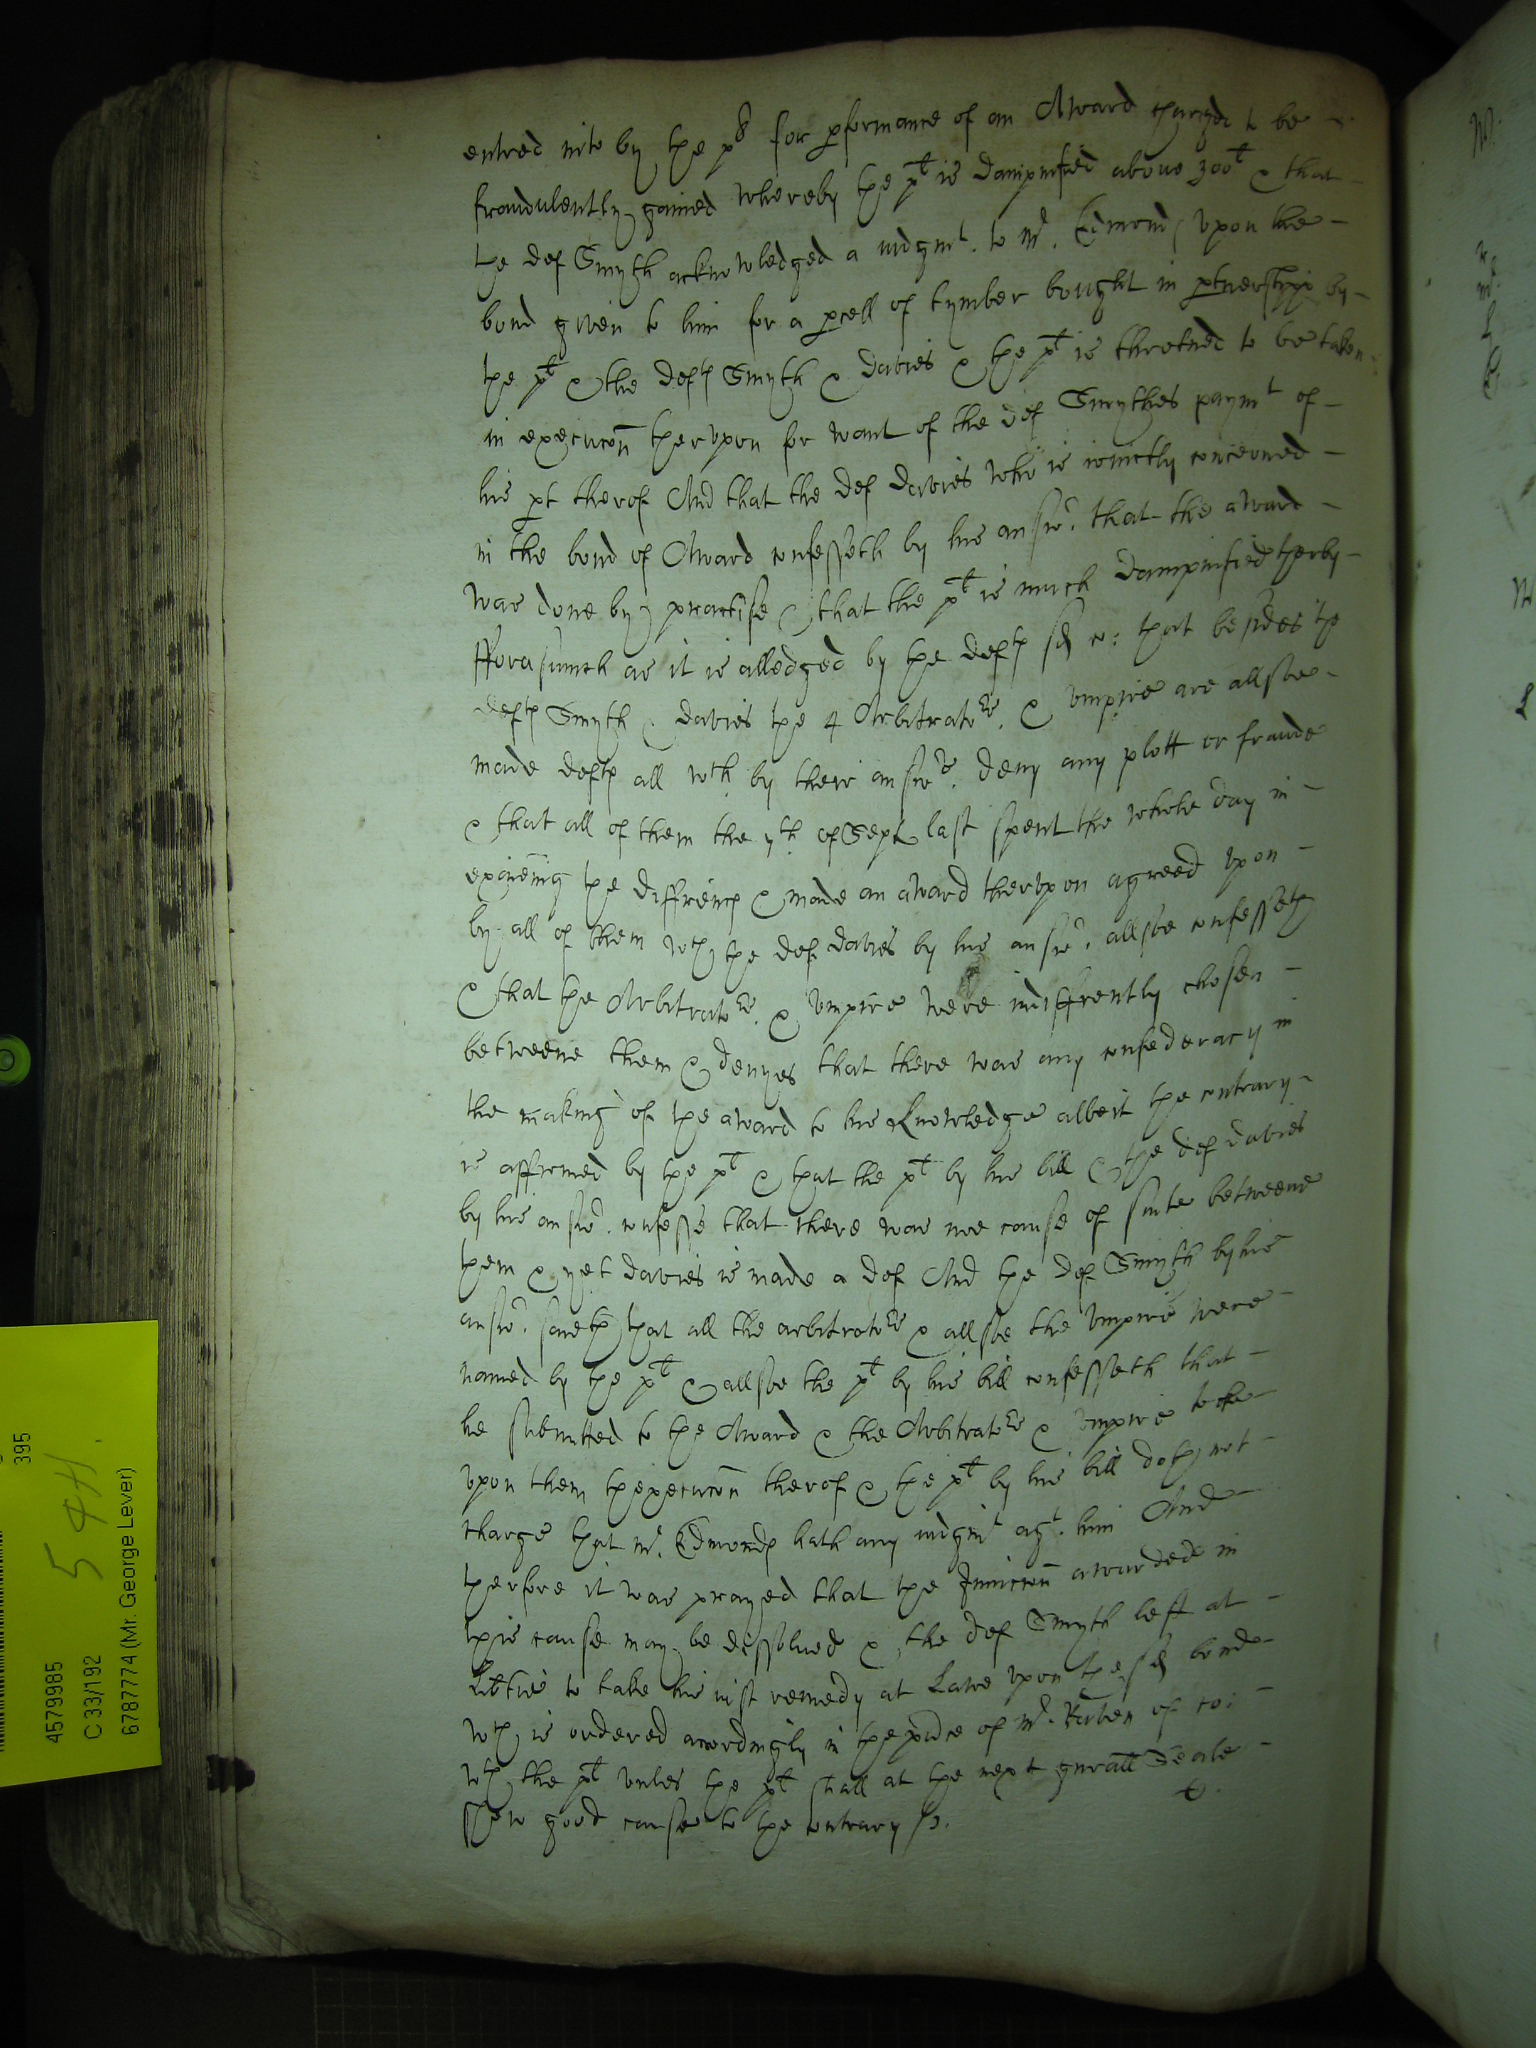 entred into by the pt for pformance of an Award charged to be
fraudulently gained whereby the plt is dampnified above 300l & that
the def Smyth acknowledged a iudgmt. to Mr. Edmonds upon the
bond given to him for a pcell of tymber bought in ptnershipp by
the plt & the defts Smyth & Davies & the plt is thretned to be taken
in execucon therupon for want of the def Smythes paymt of
his pt therof And that the def Davies who is ioinctly concerned
in the bond of Award confesseth by his answr. that the award
was done by practise & that the plt is much dampnified therby
fforasmuch as it is alledged by the defts sd co: that besides the
defts Smyth & Davies the 4 Arbitrators. & umpire are allsoe
made defts all wch by their answrs. deny any plott or fraude
& that all of them the 7th of Sept last spent the whole day in
exaieing the diffrencs & made an award therupon agreed upon
by all of them wch the def Davies by his answr. allsoe confesseth
& that the Arbitrators. & umpire were indiffrently chosen
betweene them & denyes that there was any confederacy in
the making of the award to his knowledge albeit the contrary
is affirmed by the plt & that the plt by his bill & the def Davies
by his answr. confesse that there was noe cause of suite betweene
them & yet Davies is made a def And the def Smyth by his
answr. saieth that all the arbitrators & allsoe the umpire were
named by the plt & allsoe the plt by his bill confesseth that
he submitted to the Award & the Arbitrators & umpire tooke
upon them thexecucon therof & the plt by his bill doth not
charge that Mr. Edmonds hath any iudgmt agt. him And
therfore it was prayed that the Iniuccon awarded in
this cause may be dissolued & the def Smyth left at
libtie to take his iust remedy at Lawe upon the sd bond
wch is ordered accordingly in the psence of Mr. of co:
wth the plt unles the plt shall at the next gnrall Seale
shew good cause to the contrary
395
54H.
4579985
C 33/192
6787774 (Mr. George Lever)